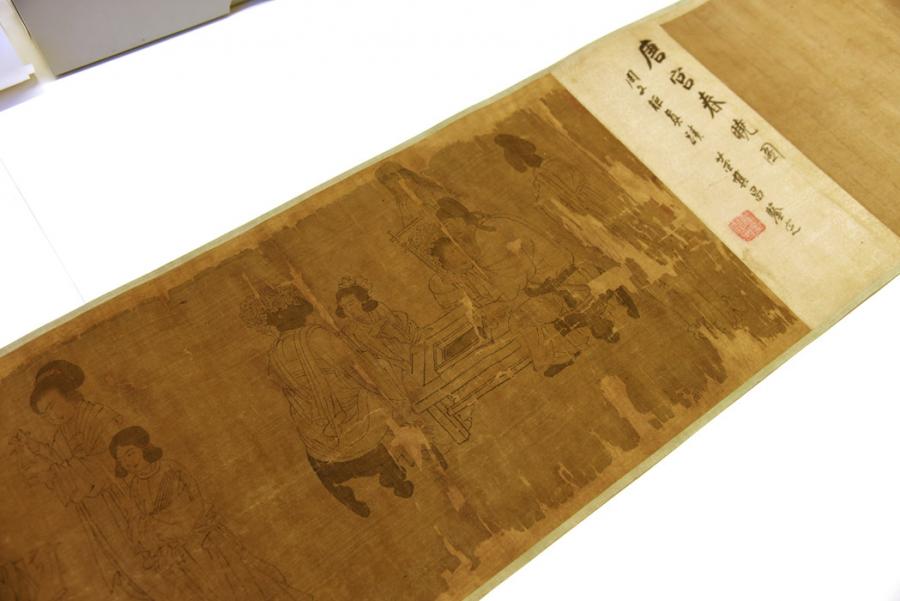 唐宮春曉圖
周文矩真蹟
董其昌鑒定